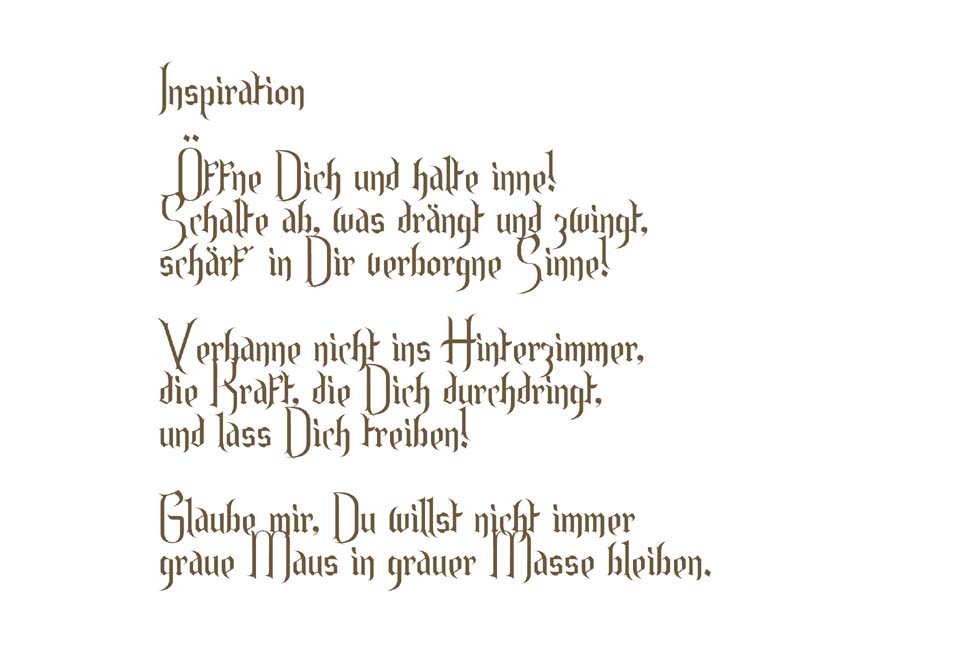 Inspiration
Öffne Dich und halte inne!
Schalte ab, was drängt und zwingt,
schärf´ in Dir verborgne Sinne!
Verbanne nicht ins Hinterzimmer,
die Kraft, die Dich durchdringt,
und lass Dich treiben!
Glaube mir, Du willst nicht immer
graue Maus in grauer Masse bleiben.